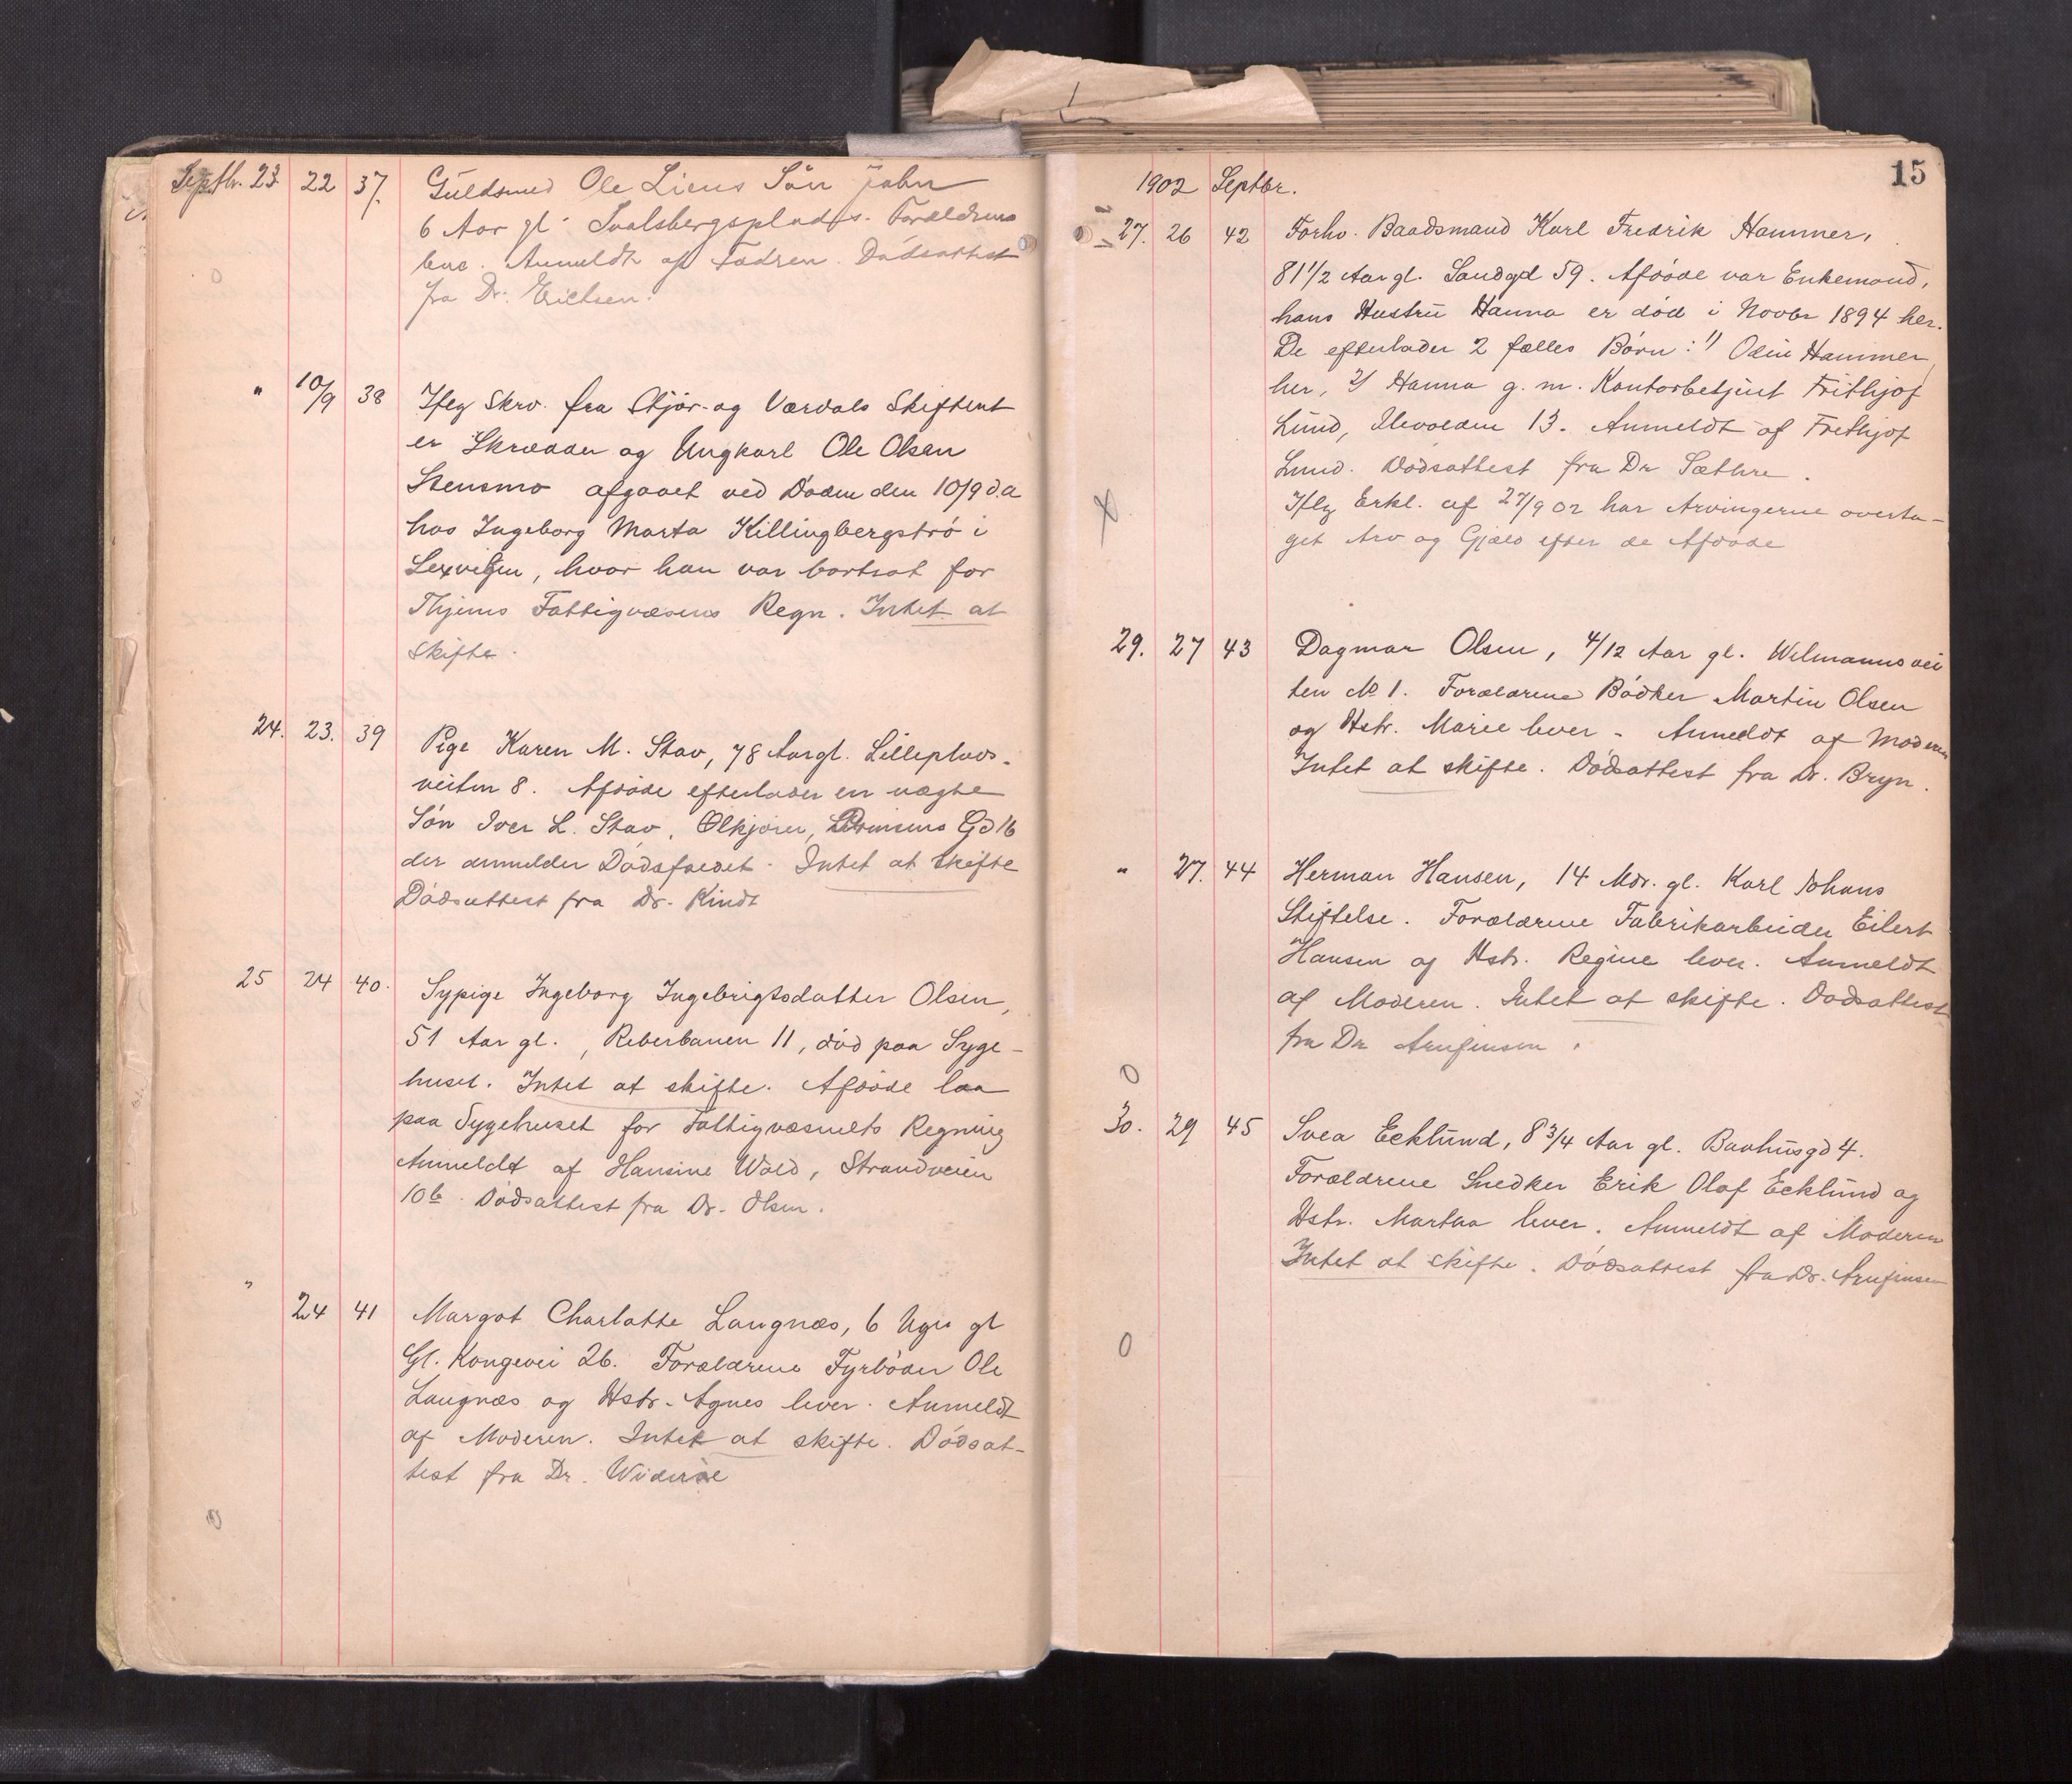 Septbr. 23 22 37. Guldsmed Ole Liens Sön John
6 Aar gl. Svalsbergsplads. Forældrene
leve. Anmeldt af Fadren. Dödsattest
fra Dr. Erichsen.
" 10/9 38 Iflg Skrv. fra Stjör- og Værdals Skifteret
er Skrædder og Ungkarl Ole Olsen
Stensmo afgaaet ved Døden den 10/9 d.a
hos Ingeborg Marta Killingbergströ i
Lexviken, hvor han var bortsat for
Thjems Fattigvæsens Regn. Intet at
skifte.
24. 23. 39 Pige Karen M. Stav, 78 Aar gl. Lilleplads-
veiten 8. Afdöde efterlader en uægte
Sön Iver L. Stav, Ölkjörer, Prinsens Gd 16
der anmelder Dödsfaldet. Intet at skifte
Dödsattest fra Dr. Kindt
25 24 40. Sypige Ingeborg Ingebrigtsdatter Olsen,
51 Aar gl., Reberbanen 11, död paa Syge-
huset. Intet at skifte. Afdöde laa
paa Sygehuset for Fattigvæsnets Regning
Anmeldt af Hansine Wold, Strandveien
10b. Dödsattest fra Dr. Olsen.
" 24 41 Margot Charlotte Langnæs, 6 Uger gl
Gl. Kongevei 26. Forældrene Fyrböder Ole
Langnæs og Hstr. Agnes lever. Anmeldt
af Moderen. Intet at skifte. Dödsat-
test fra Dr. Wideröe
15
1902 Septbr.
27. 26 42 Forhv. Baadsmand Karl Fredrik Hammer,
81 1/2 Aar gl. Sandgd 59. Afdöde var Enkemand,
hans Hustru Hanna er död i Novbr 1894 her.
De efterlader 2 fælles Börn: 1/ Odin Hammer
her, 2/ Hanna g. m. Kontorbetjent Frithjof
Lund, Ilevolden 13. Anmeldt af Frithjof
Lund. Dödsattest fra Dr Sæthre.
Iflg Erkl. af 27/9 02 har Arvingerne overta-
get Arv og Gjæld efter de Afdöde
29. 27 43 Dagmar Olsen, 4/12 Aar gl. Wilmannsvei
ten No 1. Forældrene Bödker Martin Olsen
og Hstr. Marie lever. Anmeldt af Moderen
Intet at skifte. Dödsattest fra Dr. Bryn.
" 27. 44 Herman Hansen, 14 Mdr. gl. Karl Johans
Stiftelse. Forældrene Fabrikarbeider Eilert
Hansen og Hstr. Regine lever. Anmeldt
af Moderen. Intet at skifte. Dödsattest
fra Dr Arnfinsen.
30. 29 45 Svea Ecklund, 8 3/4 Aar gl. Bakhusgd 4.
Forældrene Snedker Erik Olof Ecklund og
Hstr. Martha lever. Anmeldt af Moderen
Intet at skifte. Dödsattest fra Dr. Arnfinsen